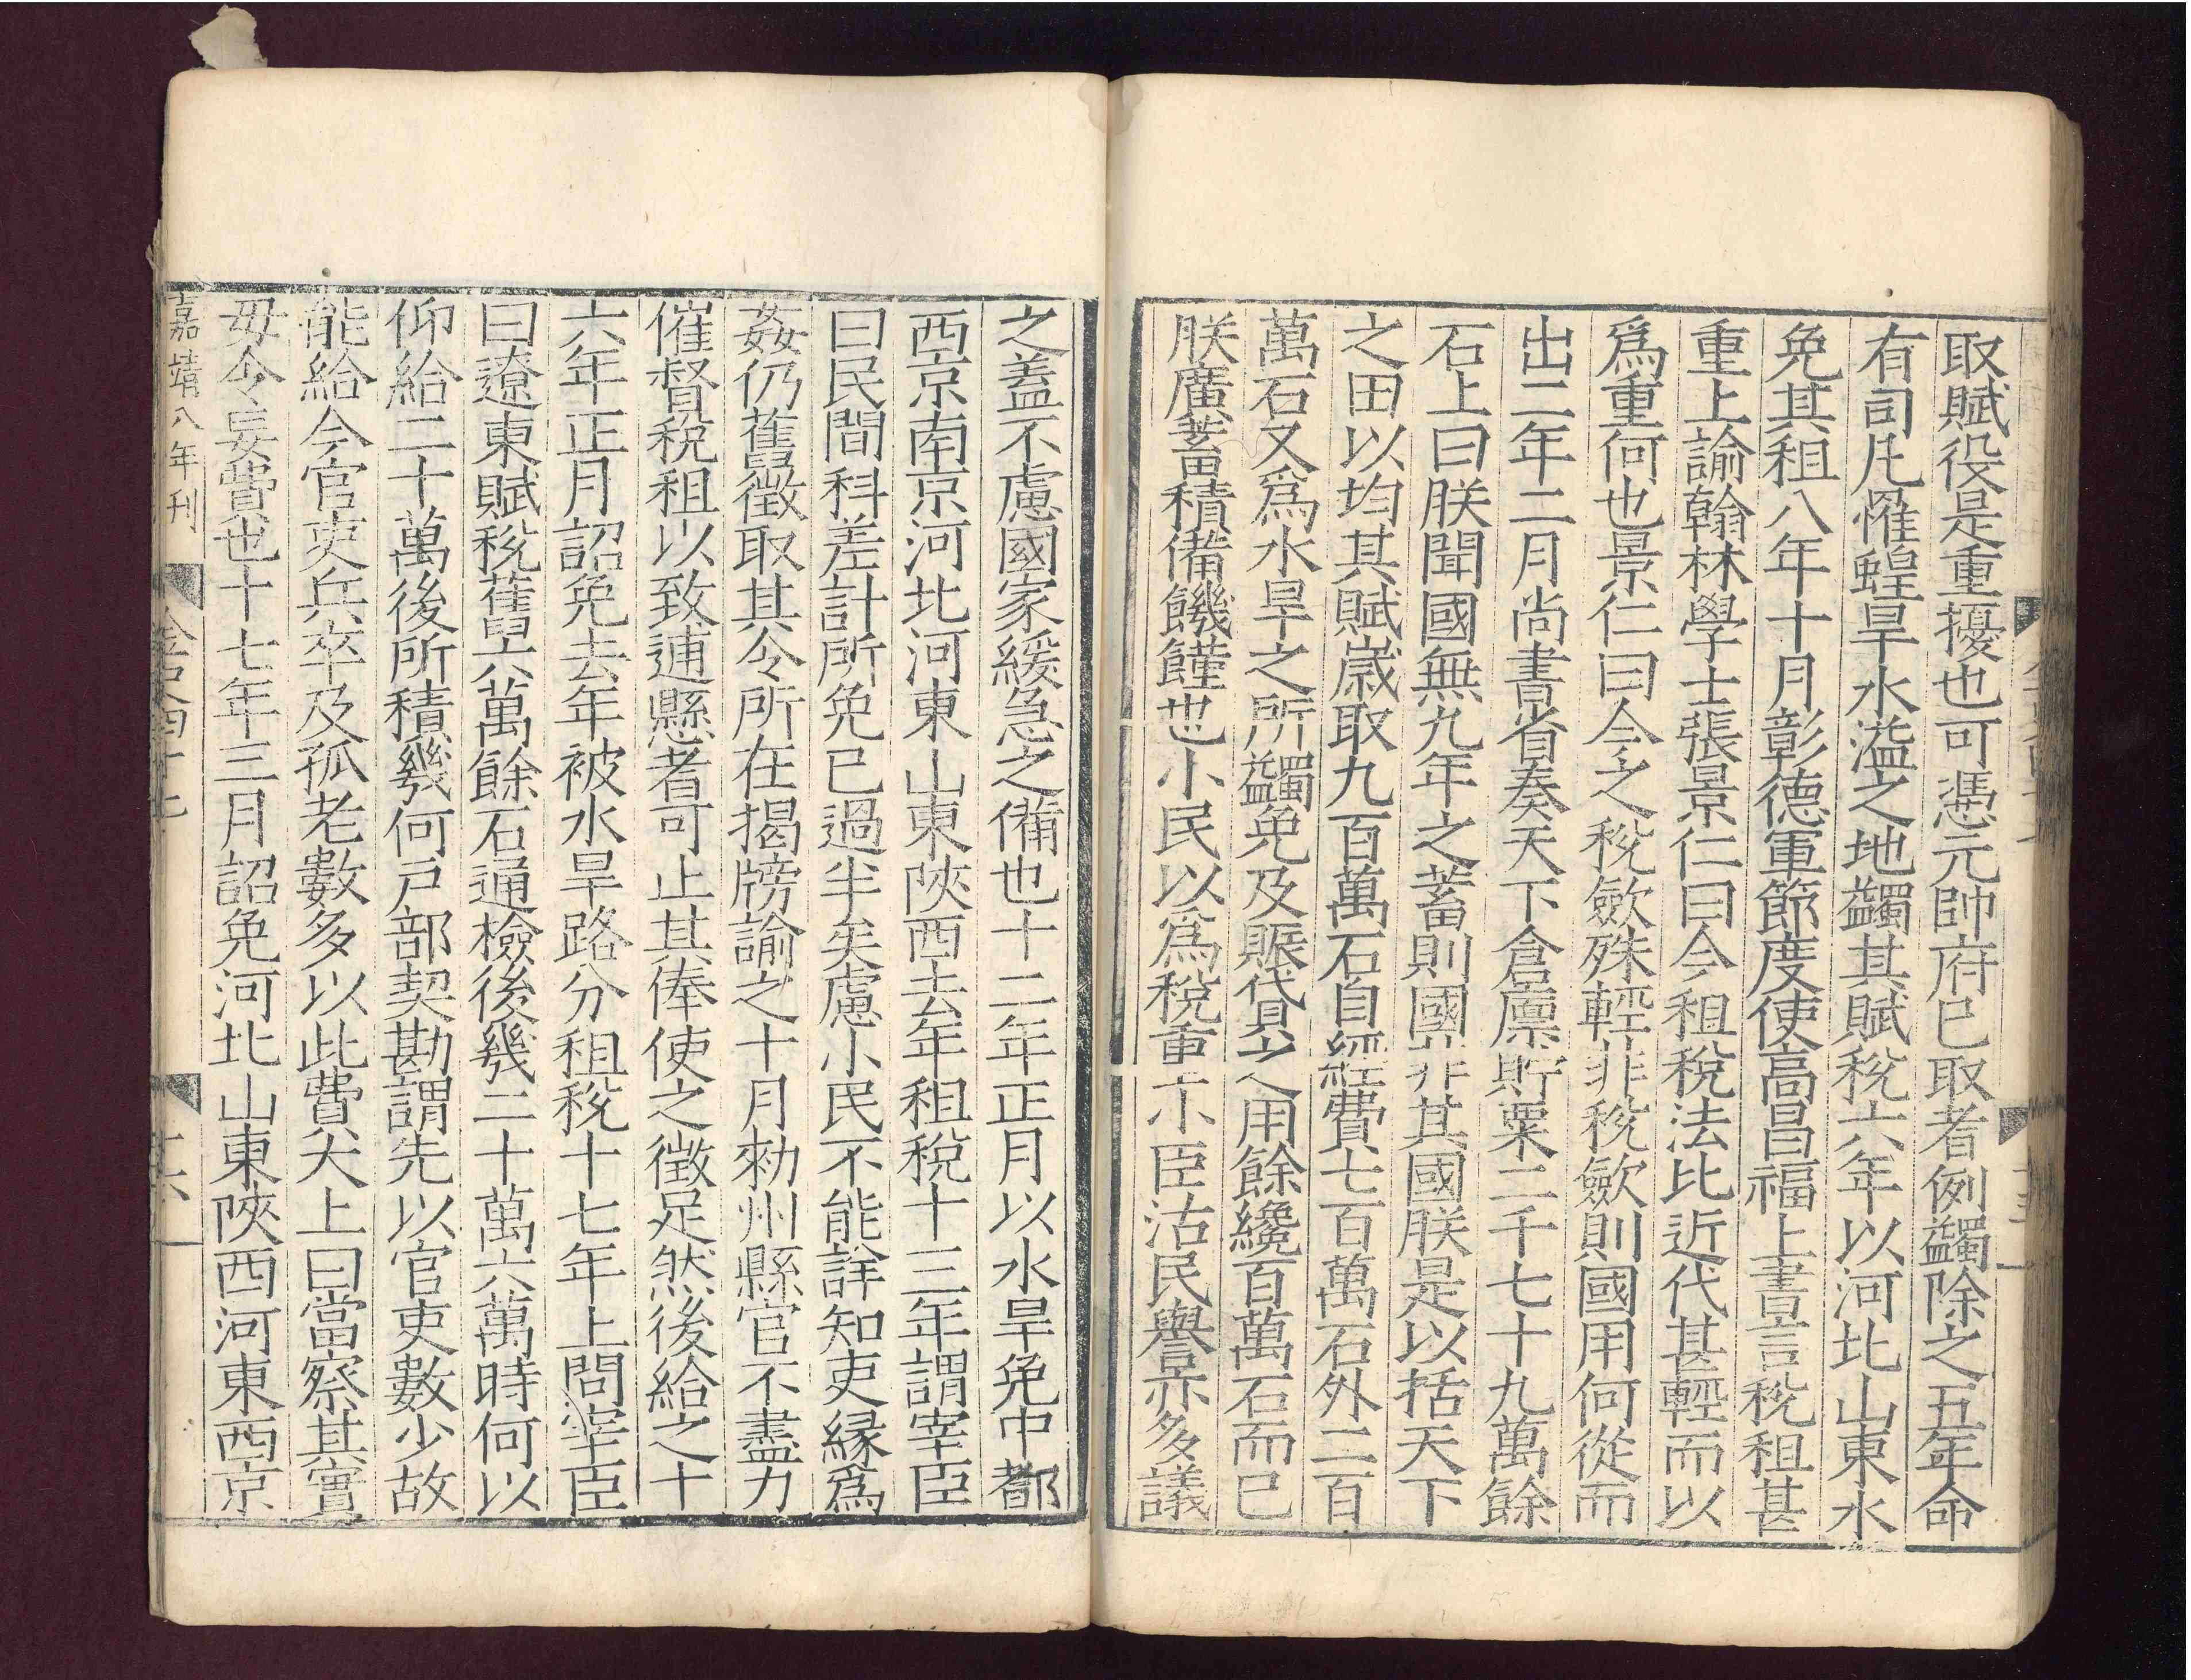 取賦役是重擾也可憑元帥府已取者例蠲除之五年命
有司凡罹蝗旱水溢之地蠲其賦稅六年以河北山東水
免其租八年十月彰德軍節度使高昌福上書言稅租甚
重上諭翰林學士張景仁曰今租稅法比近代甚輕而以
爲重何也景仁曰今之稅斂殊輕非稅斂則國用何從而
出二年二月尚書省奏天下倉廩貯粟二千七十九萬餘
石上曰朕聞國無九年之蓄則國非其國朕是以括天下
之田以均其賦歲取九百萬石自經費七百萬石外二百
萬石又爲水旱之所蠲免及賑貸之用餘纔百萬石而已
朕廣蓄積備饑饉也小民以爲稅重小臣沽民譽亦多議
之蓋不慮國家緩急之備也十二年正月以水旱免中都
西京南京河北河東山東陝西去年租稅十三年謂宰臣
曰民間科差計所免已過半矣慮小民不能詳知吏縁爲
姦仍舊徵取其令所在揭牓諭之十月勑州縣官不盡力
催督稅租以致逋懸者可止其俸使之徵足然後給之十
六年正月詔免去年被水旱路分租稅十七年上問宰臣
曰遼東賦稅舊六萬餘石通檢後幾二十萬六萬時何以
仰給二十萬後所積幾何戶部契勘謂先以官吏數少故
能給今官吏兵卒及孤老數多以此費大上曰當察其實
毋令妄費也十七年三月詔免河北山東陝西河東西京
嘉靖八年刊
金史四十七
十六